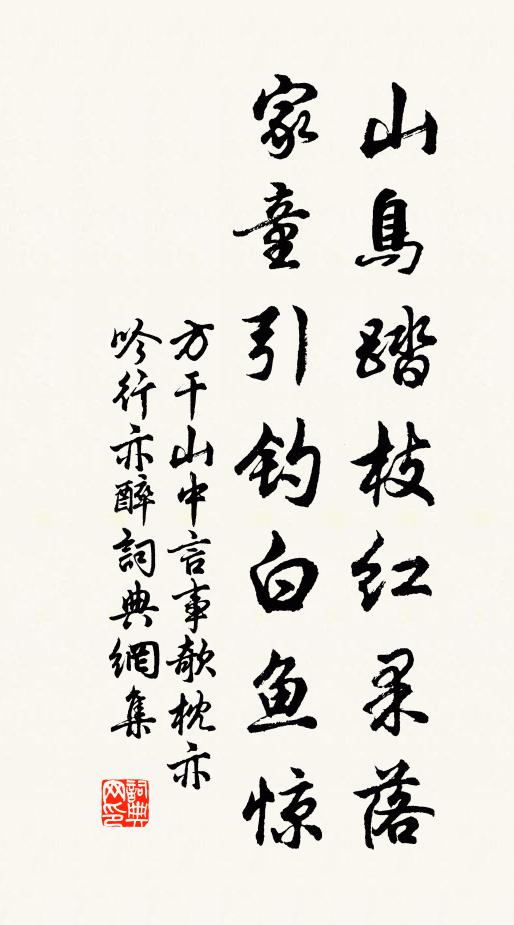 山鳥踏枝红果落
家童引钓白鱼惊
方干山中言事欹枕亦
吟行亦醉詞典網集
詞典网印